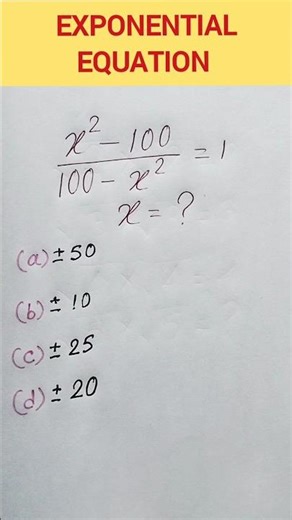 EXPONENTIAL
EQUATION
x² - 100
100 - x² = 1
x = ?
(a) ± 50
(b) ± 10
(c) ± 25
(d) ± 20